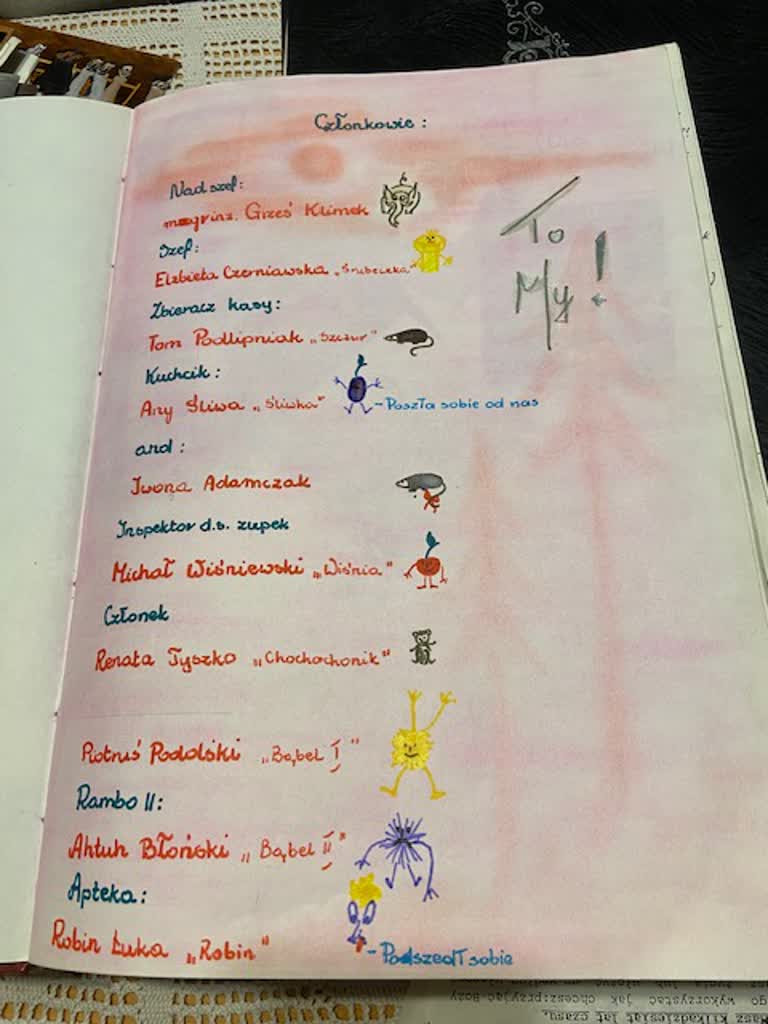 Członkowie:
Nadszef:
mgr inż. Grześ Klimek
To
My!
Szef:
Elżbieta Czerniawska „Śrubeczka"
Zbieracz kasy:
Tom Podlipniak „Szczur"
Kuchcik:
Any Śliwa „Śliwka" - Poszła sobie od nas
and:
Iwona Adamczak
Inspektor d.s. zupek
Michał Wiśniewski „Wiśnia"
Członek
Renata Tyszko „Chochochonik"
Piotruś Podolski „Bąbel I"
Rambo II:
Błoński „Bąbel II"
Apteka:
Robin Łuka „Robin" - Podszedł sobie